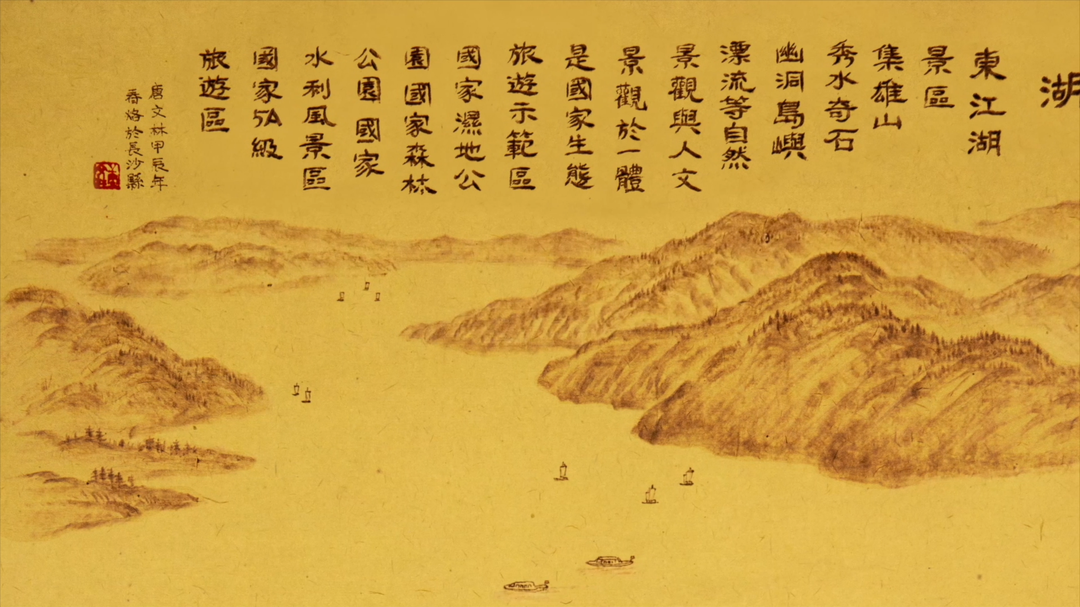 湖
東江湖
景區
集雄山
秀水奇石
幽洞島嶼
漂流等自然
景觀與人文
景觀於一體
是國家生態
旅遊示範區
國家濕地公
園國家森林
公園國家
水利風景區
國家5A級
旅遊區
唐文林甲辰年
春烙於長沙縣